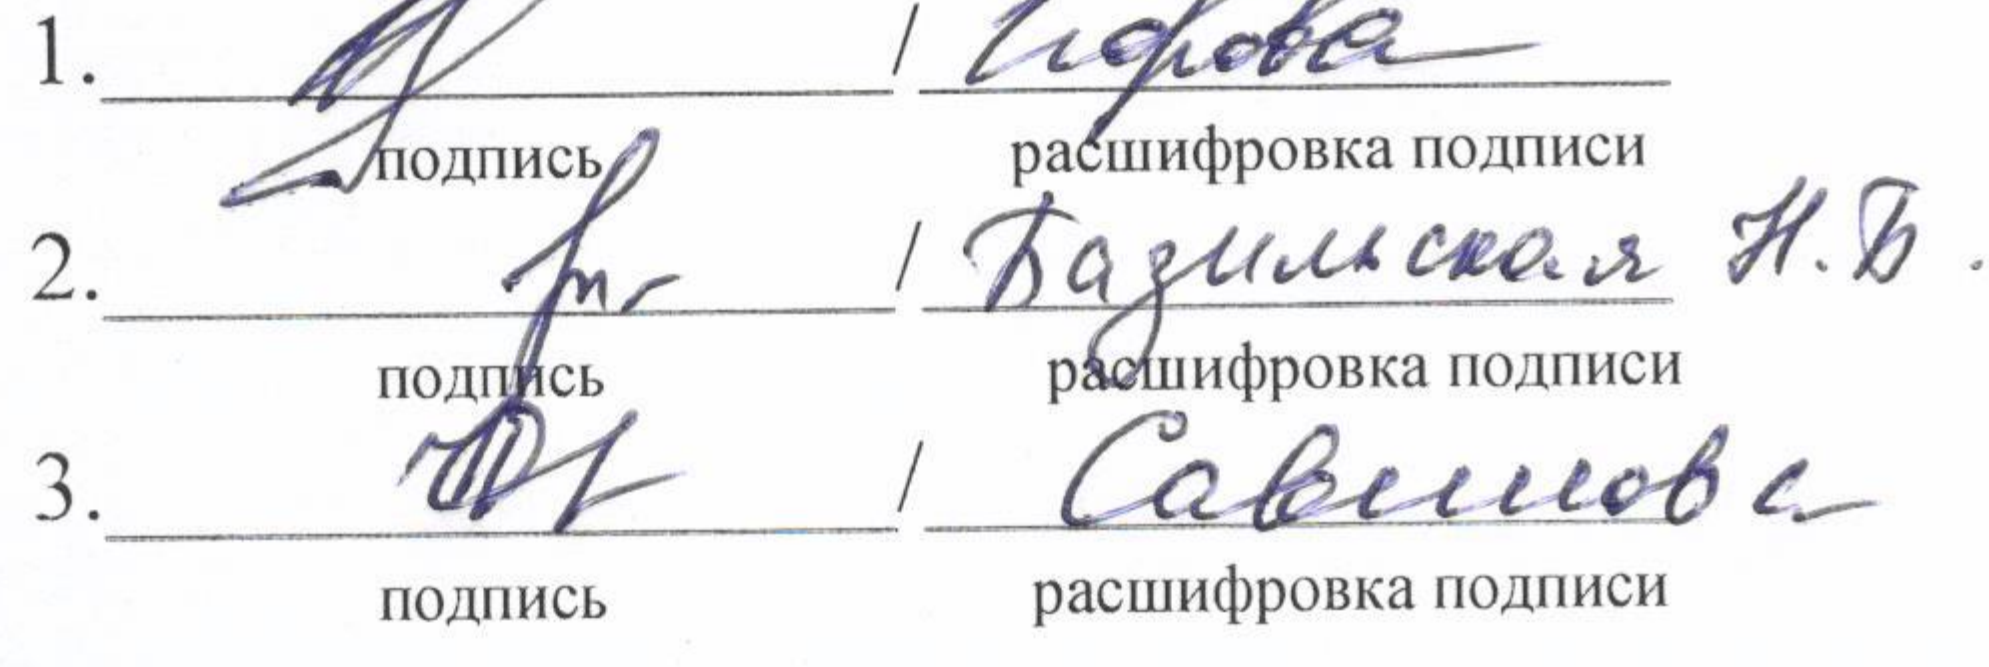 1. / 
подпись расшифровка подписи
2. / Базильская Н.Б.
подпись расшифровка подписи
3. / Савинова
подпись расшифровка подписи